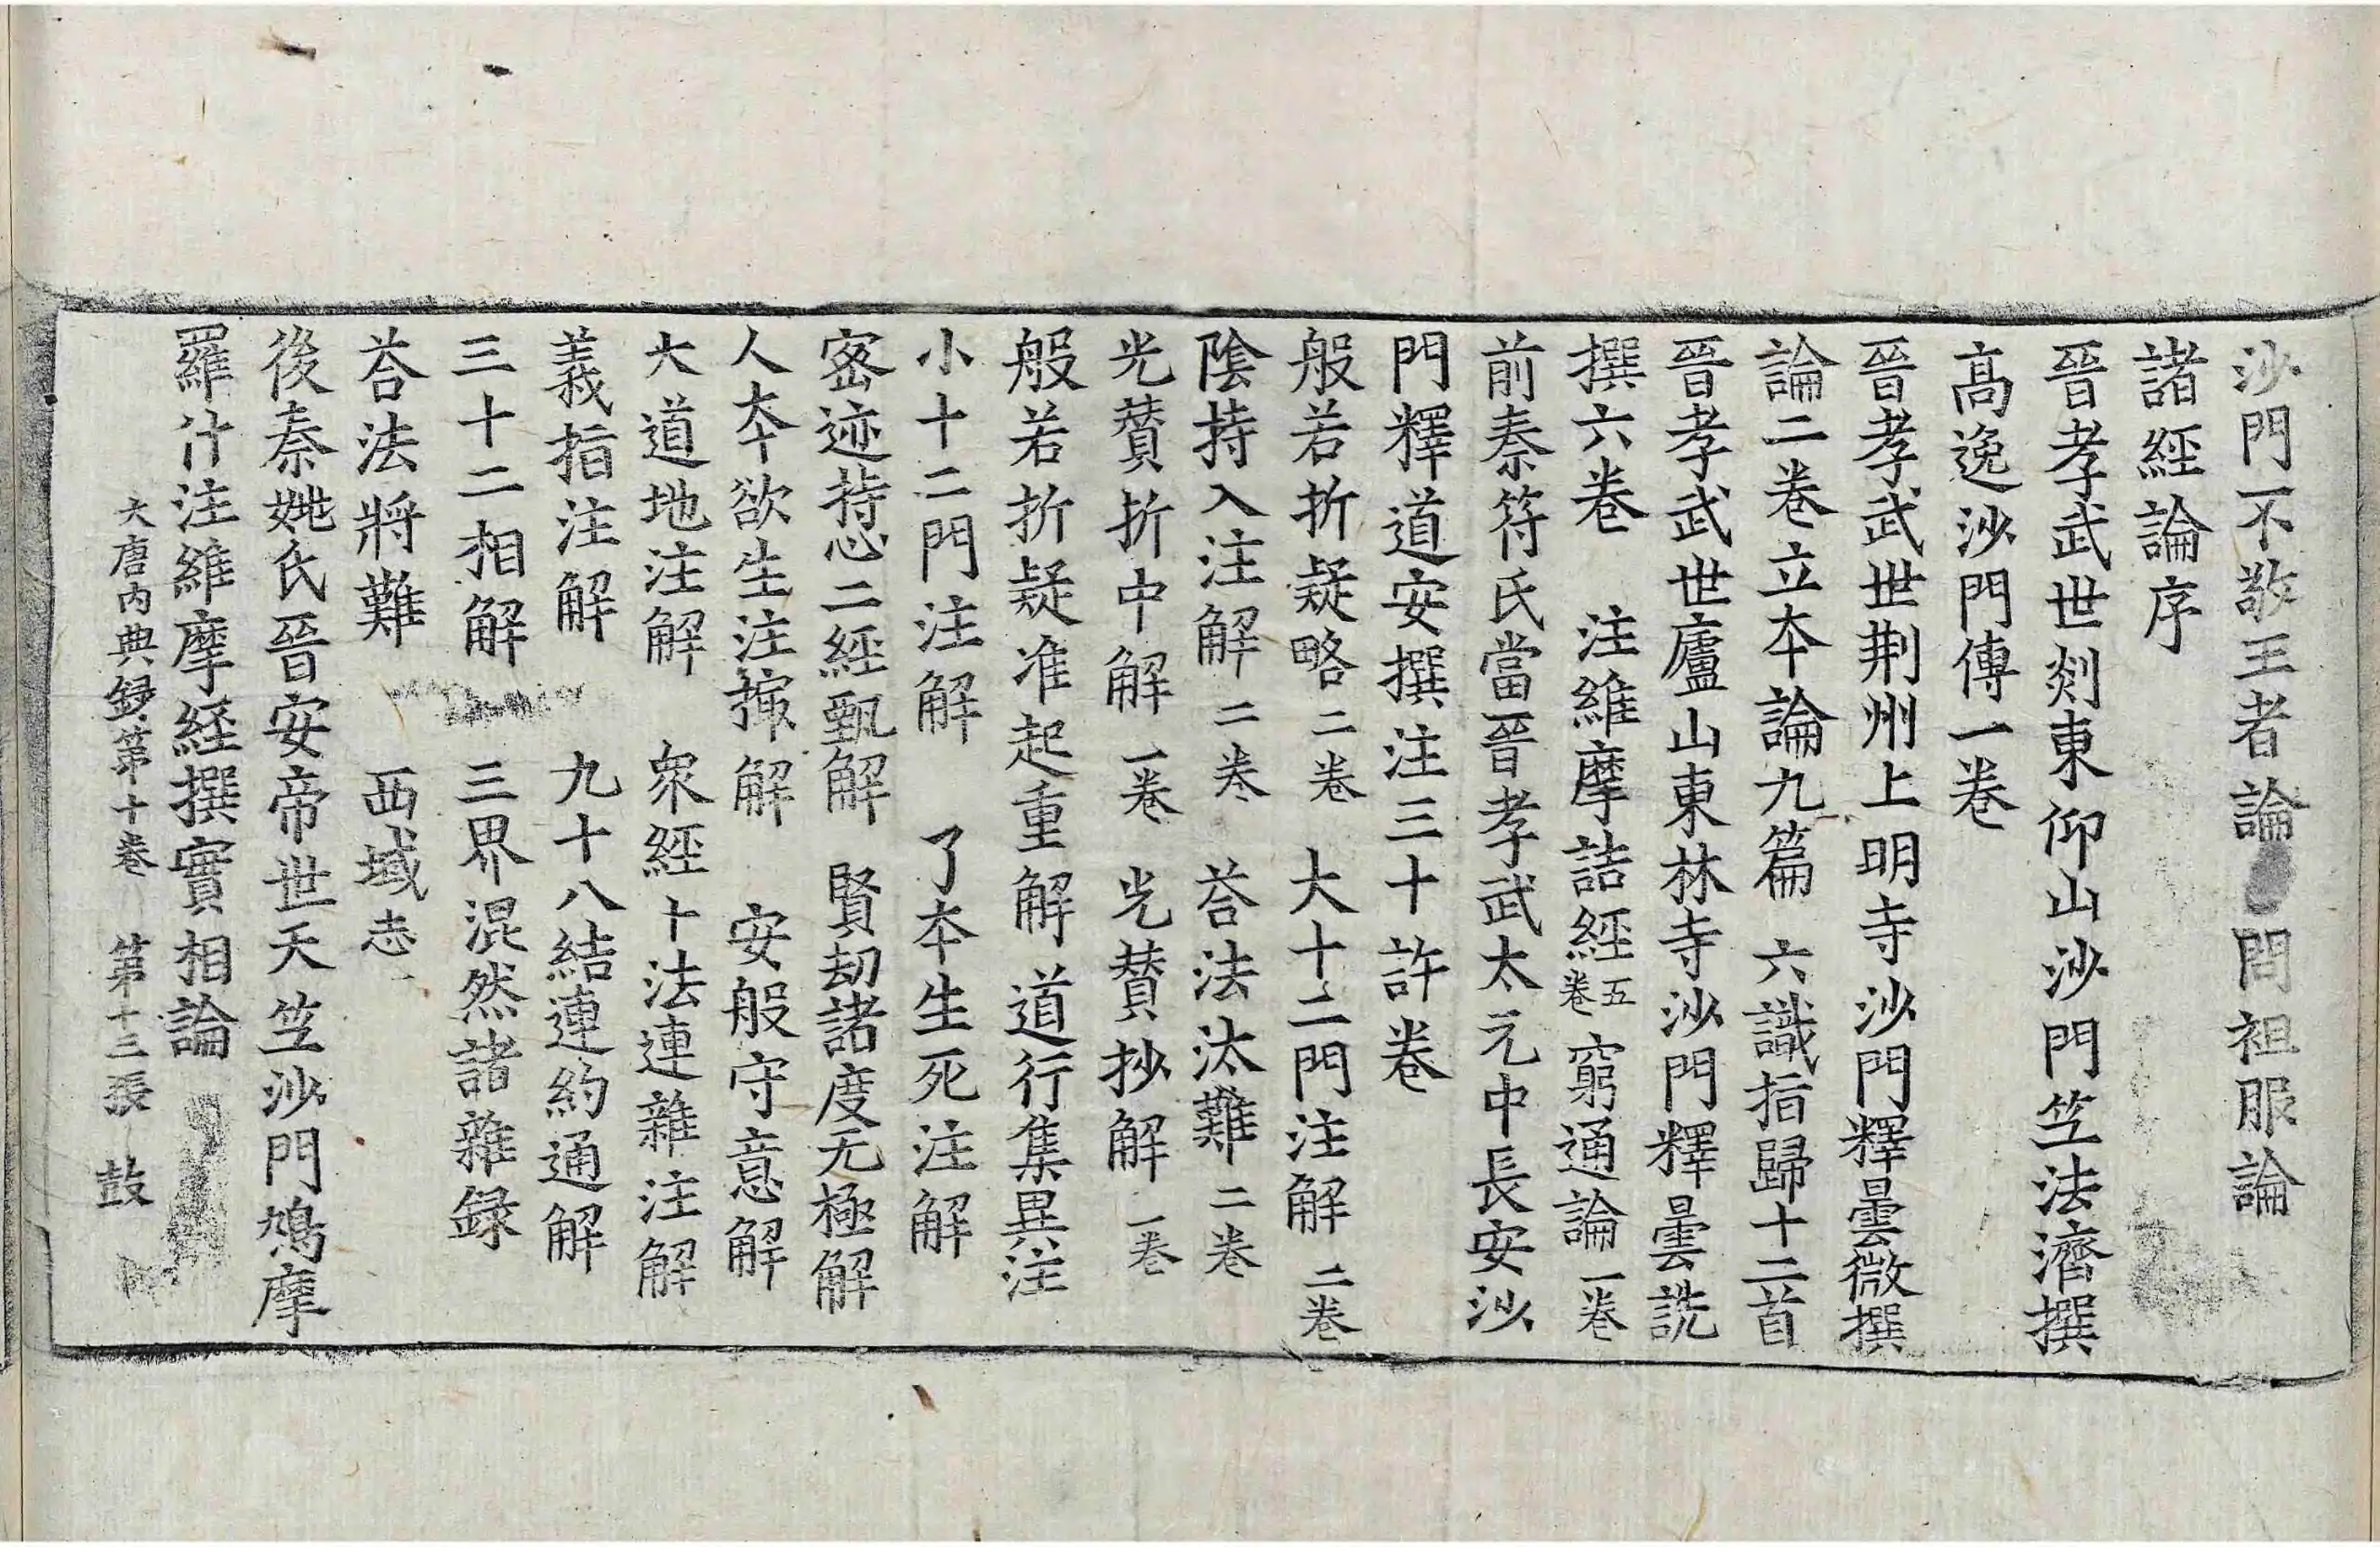 沙門不敬王者論 問袒服論
諸經論序
晉孝武世剡東仰山沙門竺法濟撰
高逸沙門傳一卷
晉孝武世荆州上明寺沙門釋曇微撰
論二卷立夲論九篇 六識指歸十二首
晉孝武世廬山東林寺沙門釋曇詵
撰六卷 注維摩詰經五卷 窮通論一卷
前秦符氏當晉孝武太元中長安沙
門釋道安撰注三十許卷
般若折疑略二卷 大十二門注解二卷
陰持入注解二卷 荅法汰難二卷
光賛折中解一卷 光賛抄解一卷
般若折疑准起重解 道行集異注
小十二門注解 了夲生死注解
密迹持心二經甄解 賢劫諸度无極解
人夲欲生注撮解 安般守意解
大道地注解 衆經十法連雜注解
義指注解 九十八結連約通解
三十二相解 三界混然諸雜録
荅法將難 西域志
後秦姚氏晉安帝世天竺沙門鳩摩
羅什注維摩経撰實相論
大唐内典録第十卷 第十三張 鼓